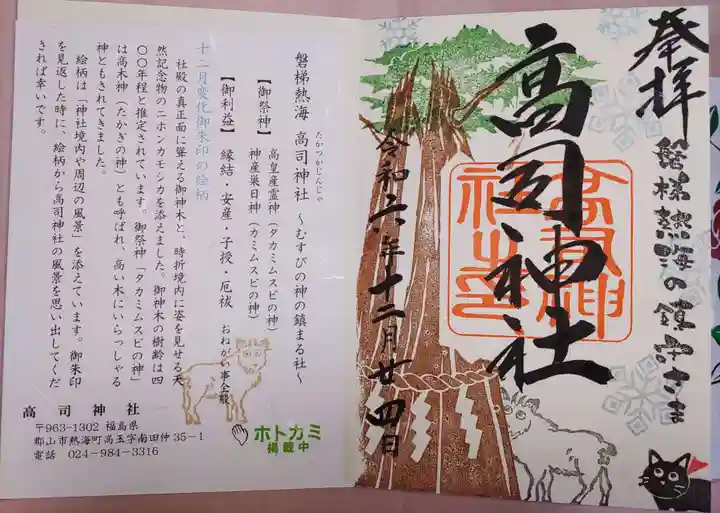 奉拝
磐梯熱海の鎮守さま
高司神社
高司神社之印
令和六年十二月廿四日
磐梯熱海 高司神社 ～むすびの神の鎮まる社～
たかつかじんじゃ
【御祭神】 高皇産霊神（タカミムスビの神）
神産巣日神（カミムスビの神）
【御利益】 縁結・安産・子授・厄祓 おねがい事全般
十二月変化御朱印の絵柄
社殿の真正面に聳える御神木と、時折境内に姿を見せる天
然記念物のニホンカモシカを添えました。御神木の樹齢は四
〇〇年程と推定されています。御祭神「タカミムスビの神」
は高木神（たかぎの神）とも呼ばれ、高い木にいらっしゃる
神ともされてきました。
絵柄は「神社境内や周辺の風景」を添えています。御朱印
を見返した時に、絵柄から高司神社の風景を思い出してくだ
されば幸いです。
高司神社
〒963-1302 福島県
郡山市熱海町高玉字南田仲35-1
電話 024-984-3316
ホトカミ
掲載中